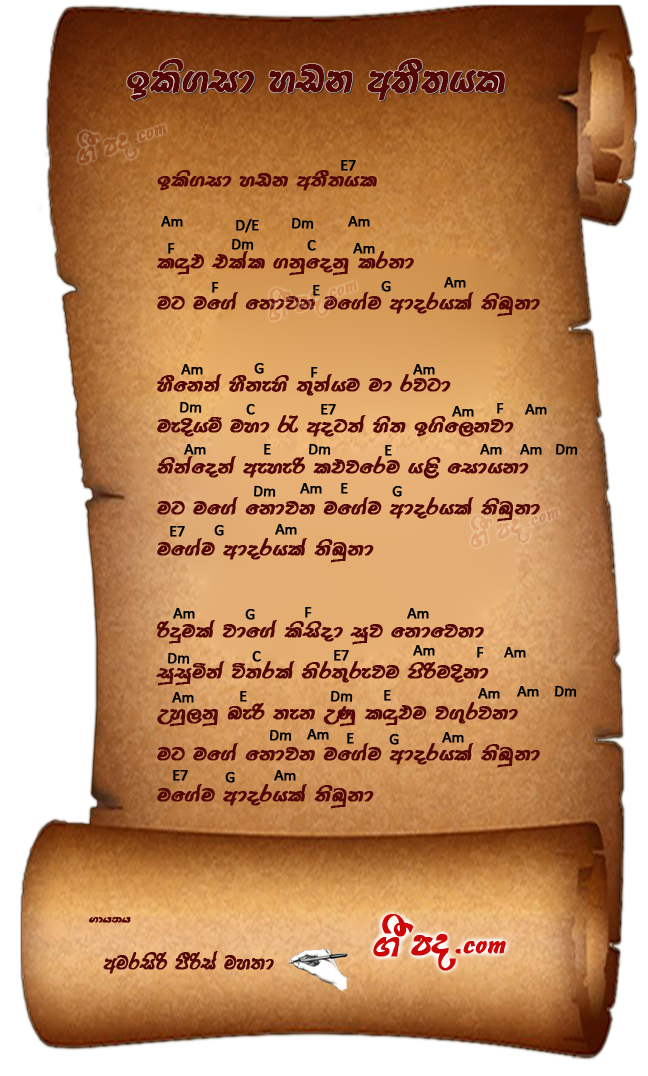 ඉකිගසා හඬන අතීතයක
ගී පද.com
E7
ඉකිගසා හඬන අතීතයක
Am D/E Dm Am
F Dm C Am
කඳුළු එක්ක ගනුදෙනු කරනා
F E G Am
මට මගේ නොවන මගේම ආදරයක් තිබුනා
ගී පද.com
Am G F Am
හීනෙන් හීනැහි තුන්යම මා රවටා
Dm C E7 Am F Am
මැදියම් මහා රෑ අදටත් හිත ඉගිලෙනවා
Am E Dm E Am Am Dm
නින්දෙන් ඇහැරි කළුවරෙම යළි සොයනා
Dm Am E G
මට මගේ නොවන මගේම ආදරයක් තිබුනා
ගී පද.com
E7 G Am
මගේම ආදරයක් තිබුනා
Am G F Am
රිදුමක් වාගේ කිසිදා සුව නොවෙනා
Dm C E7 Am F Am
සුසුමින් විතරක් නිරතුරුවම පිරිමදිනා
Am E Dm E Am Am Dm
උහුලනු බැරි තැන උණු කඳුළුම වගුරවනා
Dm Am E G Am
මට මගේ නොවන මගේම ආදරයක් තිබුනා
E7 G Am
මගේම ආදරයක් තිබුනා
ගායනය
අමරසිරි පීරිස් මහතා
ගී පද.com